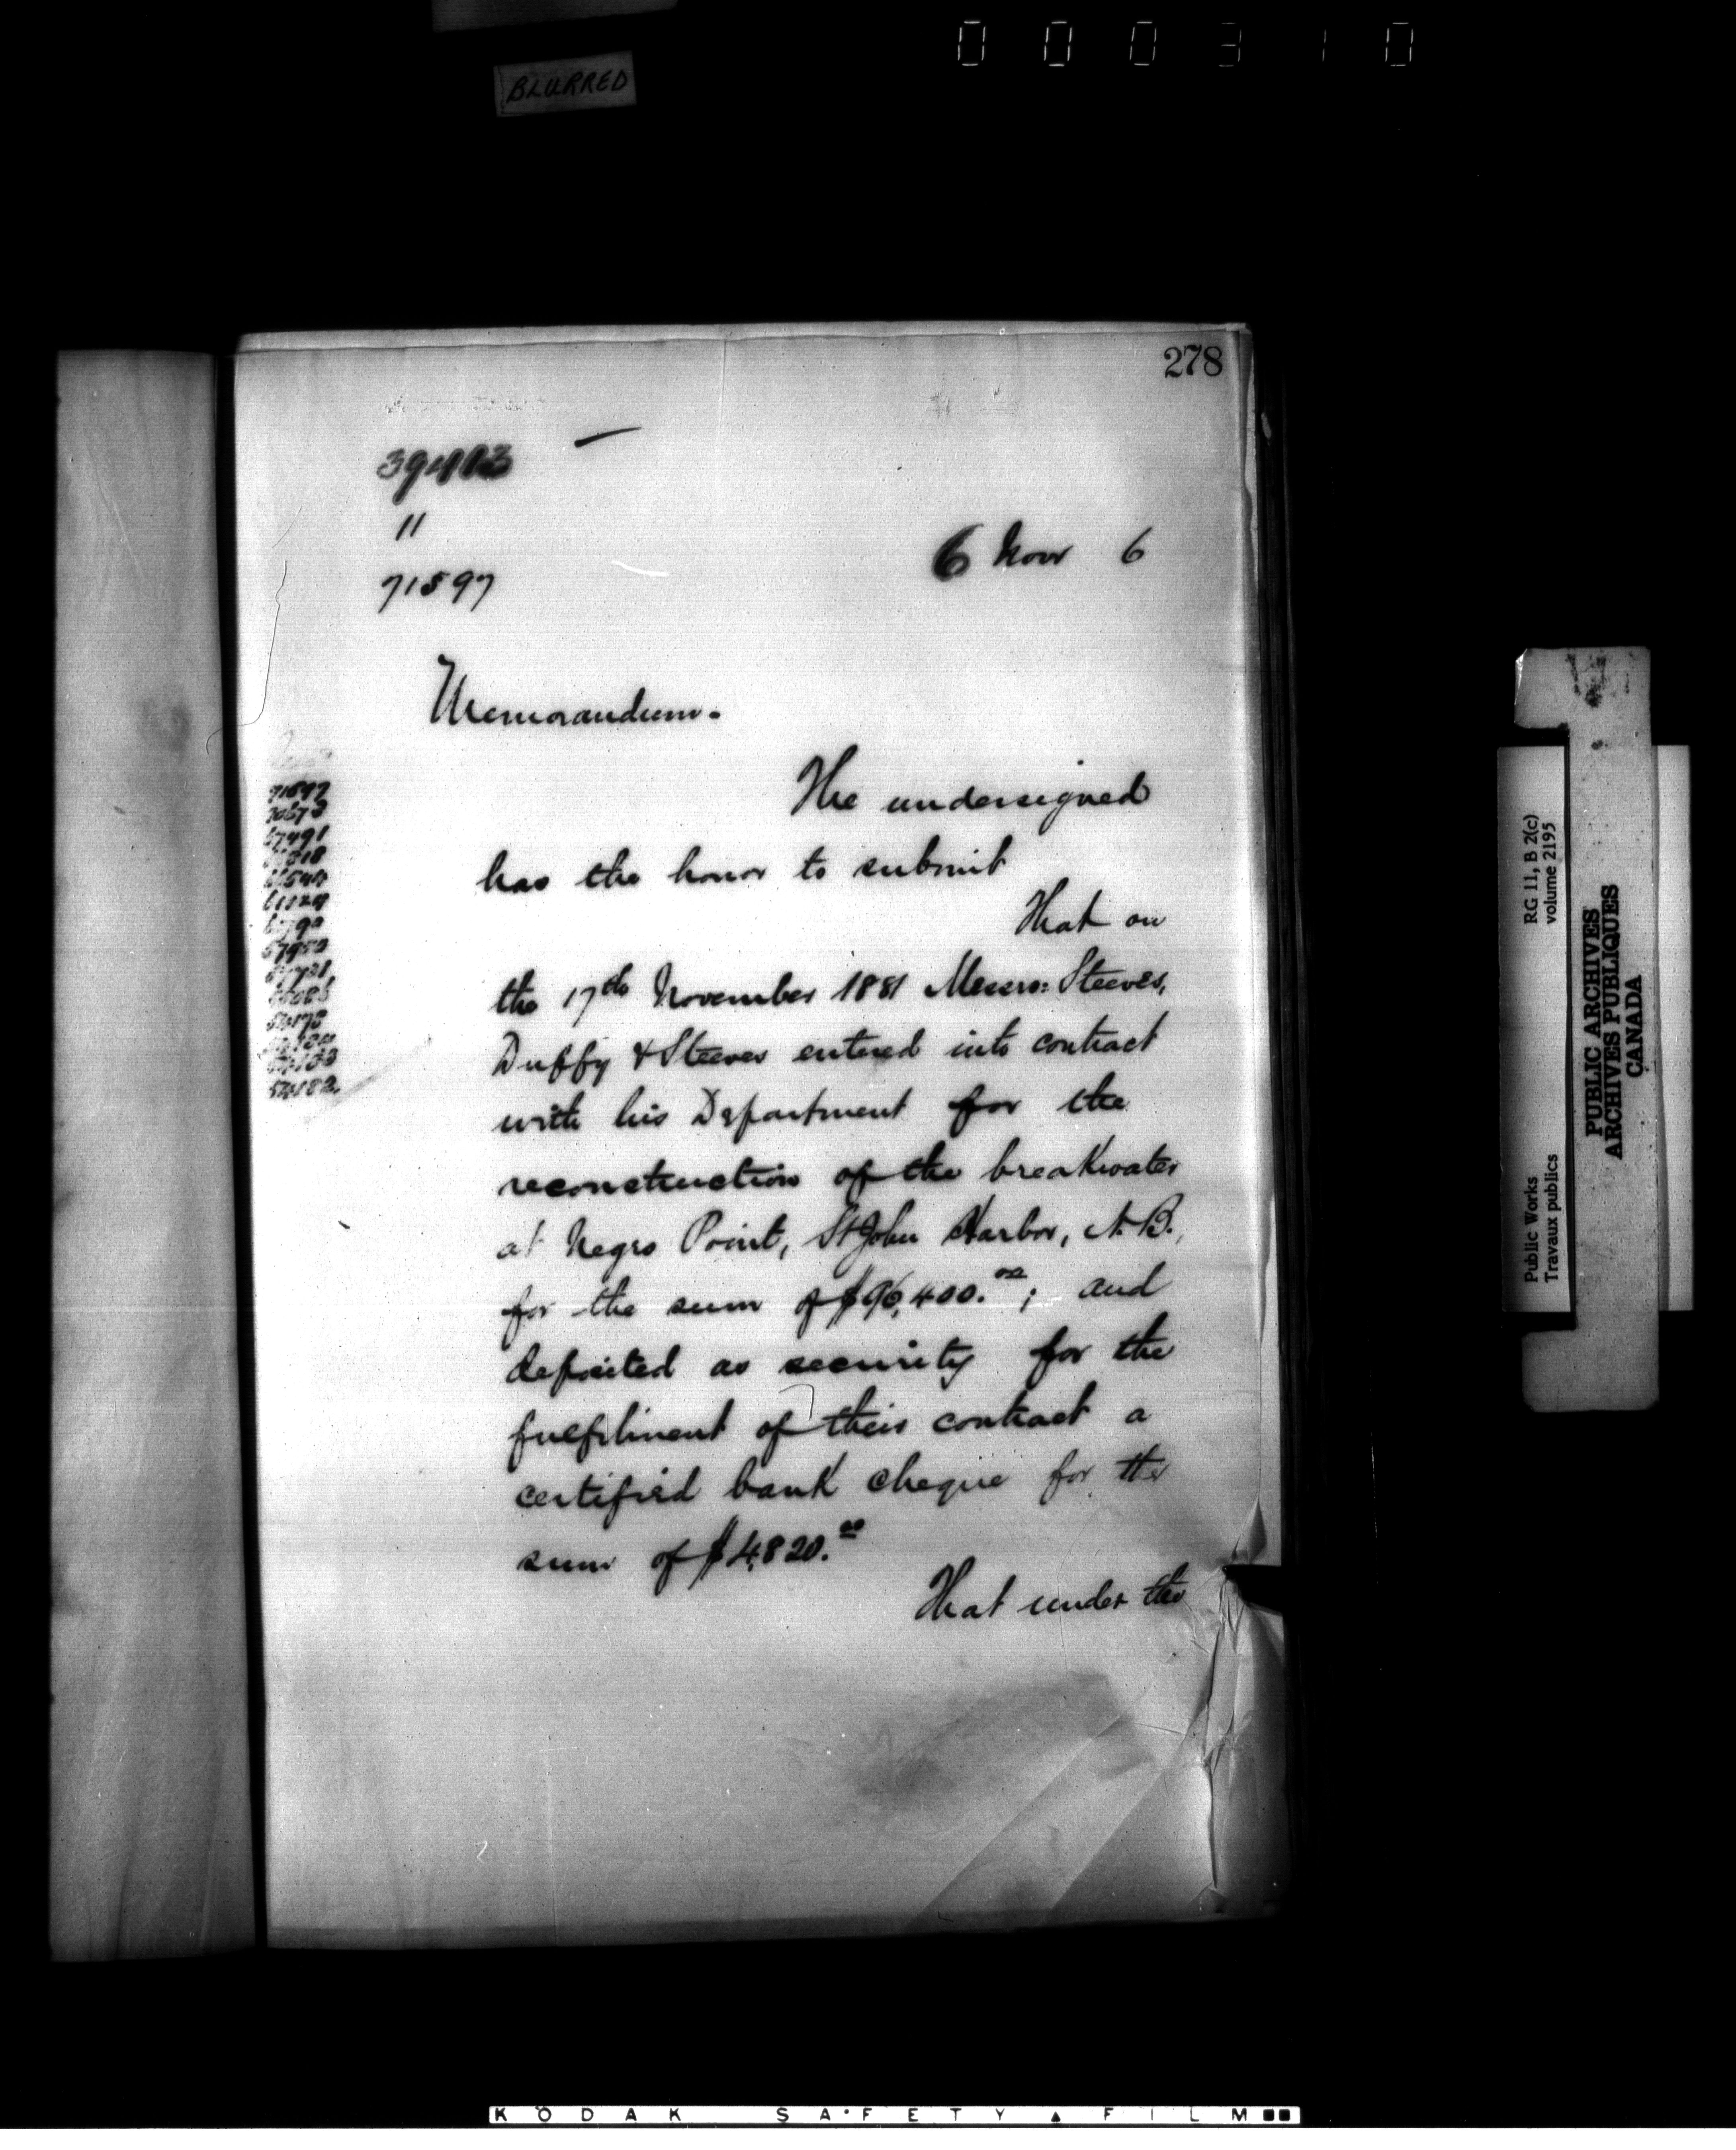 000310
BLURRED
278
11
71597
6 Nov 6
Memorandum.
The undersigned
has the honor to submit
That on
the 17th November 1881 Messrs: Steeves,
Duffy & Steeves entered into contract
with his Department for the
reconstruction of the breakwater
at Negro Point, St John Harbor, N.B.,
for the sum of $96,400.00; and
deposited as security for the
fulfilment of their contract a
certified bank cheque for the
sum of $4,820.00
That under the
71597
RG 11, B 2(c)
volume 2195
Public Works
Travaux publics
PUBLIC ARCHIVES
ARCHIVES PUBLIQUES
CANADA
KODAK SAFETY FILM